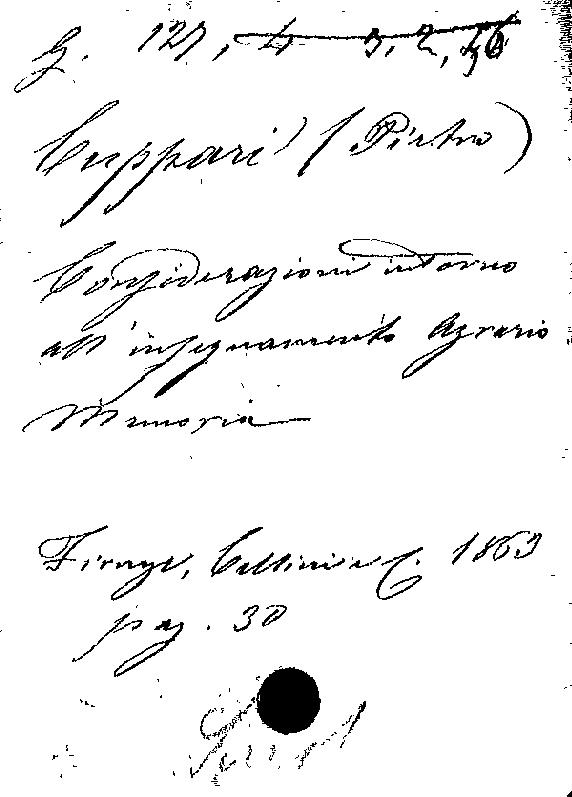 G. 127, 4 3, 2, 46
Cuppari (Pietro)
Considerazioni intorno
all'insegnamento Agrario
Memoria
Firenze, Cellini e C. 1863
pag. 30